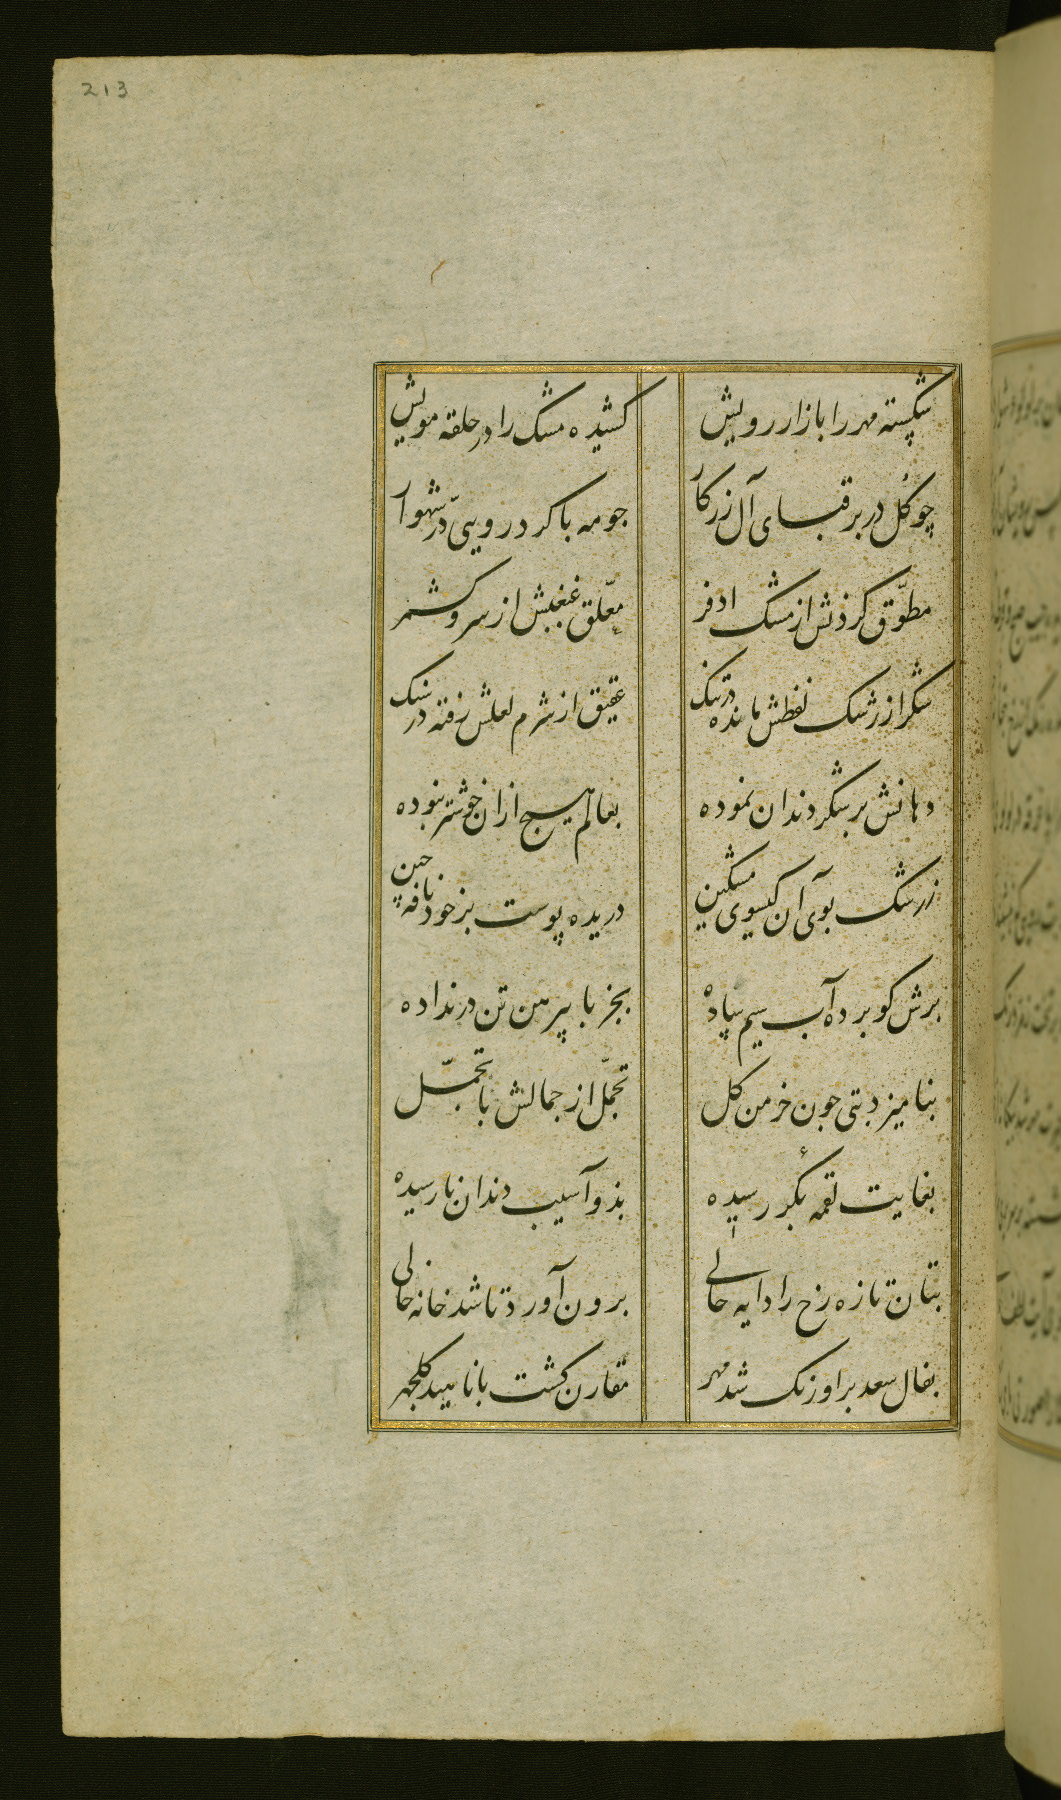 213
شکسته مهر را بازار رویش
کشیده مشک را در حلقه مویش
چو گل در بر قبای آل زرکار
جو مه با کرد رویی درّ شهوار
مطوّق کردنش از مشک ادفر
معلّق غبغبش از سرو کشمر
شکر از رشک نطقش مانده در تنک
عقیق از شرم لعلش رفته در سنک
دهانش بر شکر دندان نموده
بعالم هیچ ازان خوشتر نبوده
ز رشک بوی آن کیسوی مشکین
دریده پوست بر خود نافه چین
برش کو برده آب سیم ساده
بجز با پیرهن تن در نداده
بنامیزد بتی جون خرمن کل
تجمّل از جمالش با تجمّل
بغایت لقمه بکر رسیده
بذو آسیب دندان نارسیده
بتان تازه رخ را دایه حالی
برون آورد تا شد خانه خالی
بفال سعد بر اورنک شد مهر
مقارن کشت با ناهید کلجهر